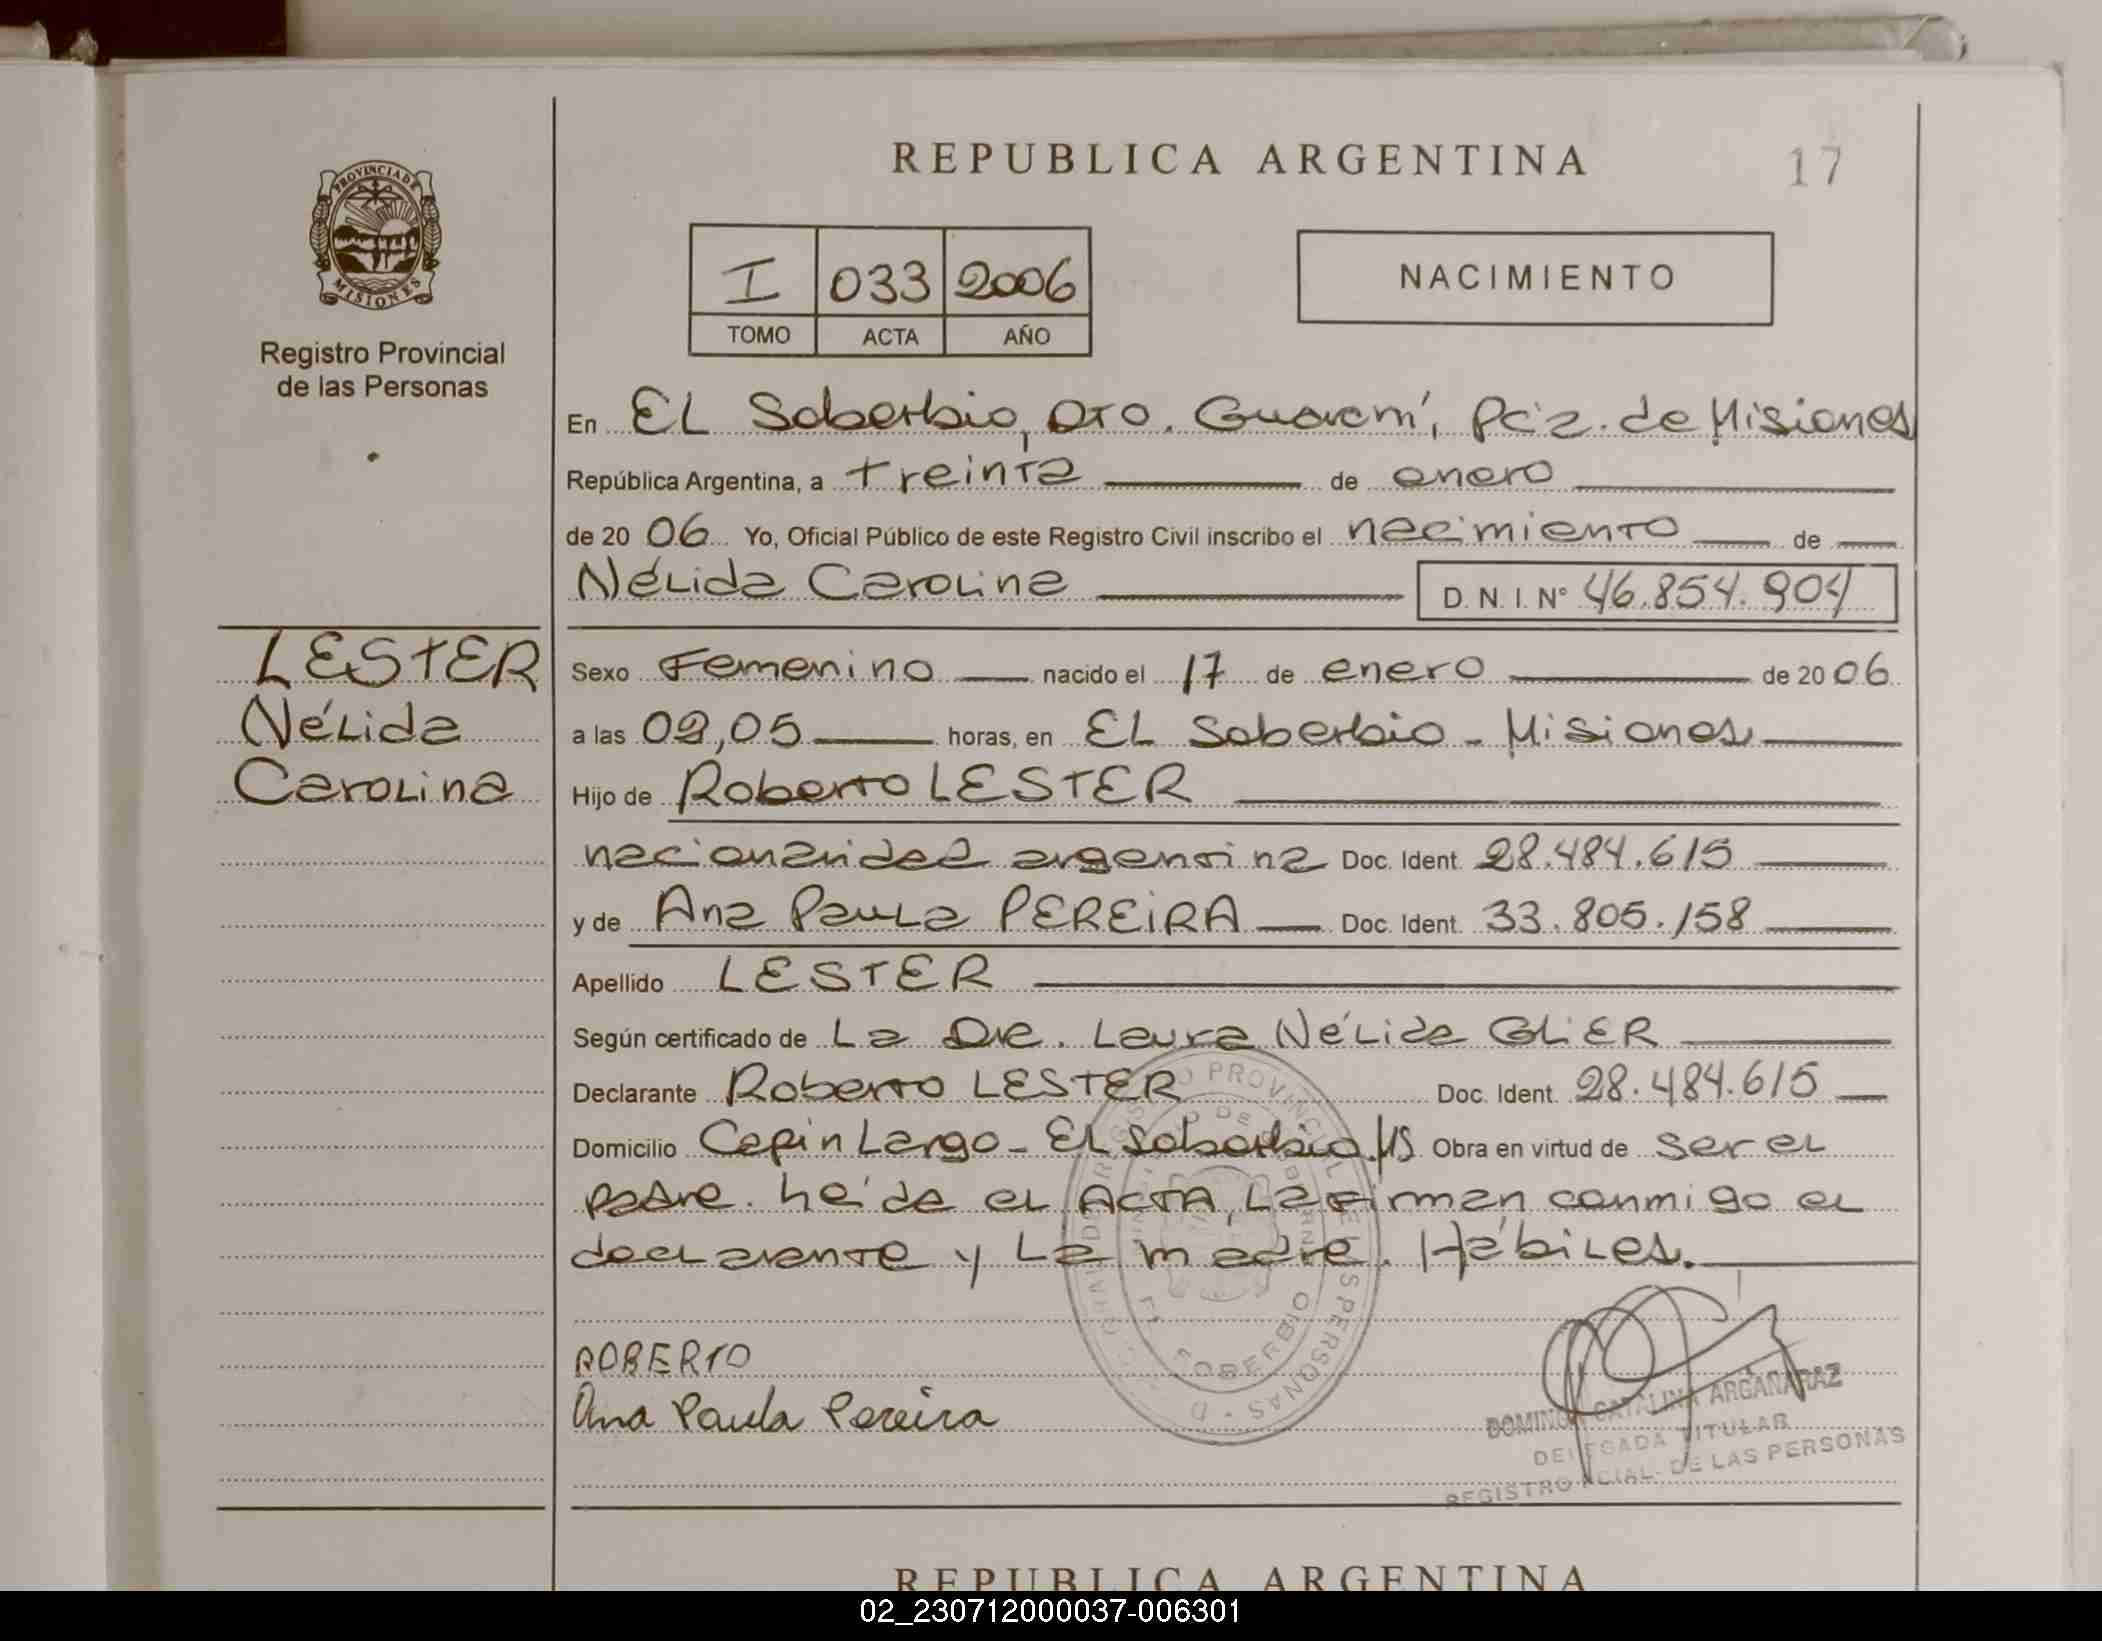 REPUBLICA ARGENTINA
17
PROVINCIA DE MISIONES
Registro Provincial
de las Personas
I 033 2006
TOMO ACTA AÑO
NACIMIENTO
En EL Soberbio, Dto. Guaraní, Pcia. de Misiones
República Argentina, a treinta de enero
de 2006 Yo, Oficial Público de este Registro Civil inscribo el nacimiento de
Nélida Carolina D. N. I. Nº 46.854.904
LESTER
Nélida
Carolina
Sexo Femenino nacido el 17 de enero de 2006
a las 02,05 horas, en EL Soberbio - Misiones
Hijo de Roberto LESTER
nacionalidad argentina Doc. Ident. 28.484.615
y de Ana Paula PEREIRA Doc. Ident. 33.805.158
Apellido LESTER
Según certificado de La Dra. Laura Nélida GLIER
Declarante Roberto LESTER Doc. Ident. 28.484.615
Domicilio Cepin Largo - El Soberbio Obra en virtud de ser el
padre. Leída el ACTA, La firman conmigo el
declarante y La madre. Hábiles.
ROBERTO
Ana Paula Pereira
DOMINGA CATALINA ARGAÑARAZ
DELEGADA TITULAR
REGISTRO PCIAL. DE LAS PERSONAS
REPUBLICA ARGENTINA
02_230712000037-006301